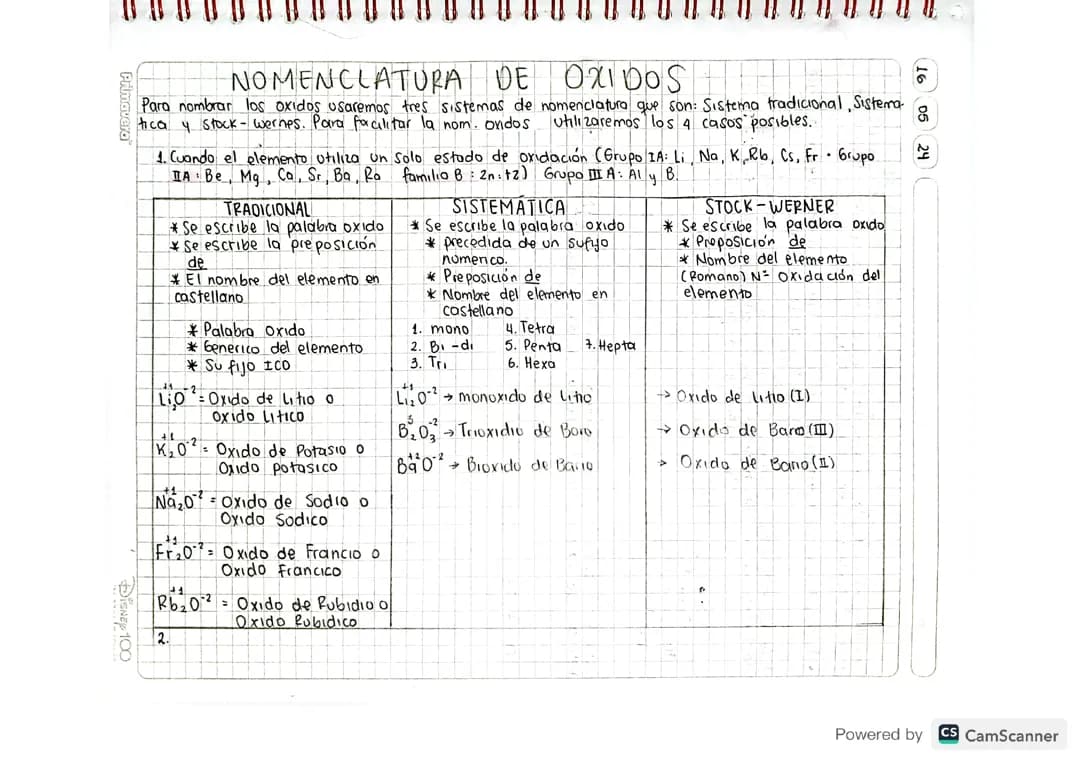 NOMENCLATURA DE OXIDOS
Para nombrar los oxidos usaremos tres sistemas de nomenclatura que son: Sistema tradicional, Sistema-
tica y Stock-wernes. Para facilitar la nom. oxidos utilizaremos los 4 casos posibles.
1. Cuando el elemento utiliza un solo estado de oxidación (Grupo IA: Li, Na, K, Rb, Cs, Fr · Grupo
IIA: Be, Mg, Ca, Sr, Ba, Ra familia B: Zn:+2) Grupo III A: Al y B.
TRADICIONAL
* Se escribe la palabra oxido
* Se escribe la preposición
de
* El nombre del elemento en
castellano
* Palabra oxido
* Generico del elemento
* Sufijo ICO
Li₂⁺¹O⁻² = Oxido de Litio o
Oxido Litico
K₂⁺¹O⁻² = Oxido de Potasio o
Oxido potasico
Na₂⁺¹O⁻² = Oxido de Sodio o
Oxido Sodico
Fr₂⁺¹O⁻² = Oxido de Francio o
Oxido Francico
Rb₂⁺¹O⁻² = Oxido de Rubidio o
Oxido Rubidico
2.
SISTEMÁTICA
* Se escribe la palabra oxido
* precedida de un sufijo
numerico.
* Preposición de
* Nombre del elemento en
castellano
1. mono 4. Tetra
2. Bi-di 5. Penta 7. Hepta
3. Tri 6. Hexa
Li₂⁺¹O⁻² → monoxido de Litio
B₂³O₃⁻² → Trioxidio de Boro
Ba⁺²O⁻² → Bioxido de Bario
STOCK-WERNER
* Se escribe la palabra oxido
* Proposición de
* Nombre del elemento
(Romano) Nº Oxidación del
elemento
→ Oxido de Litio (I)
→ Oxido de Baro (III)
→ Oxido de Bario (II)
16 05 24
Primavera
Disney 100
Powered by CS CamScanner